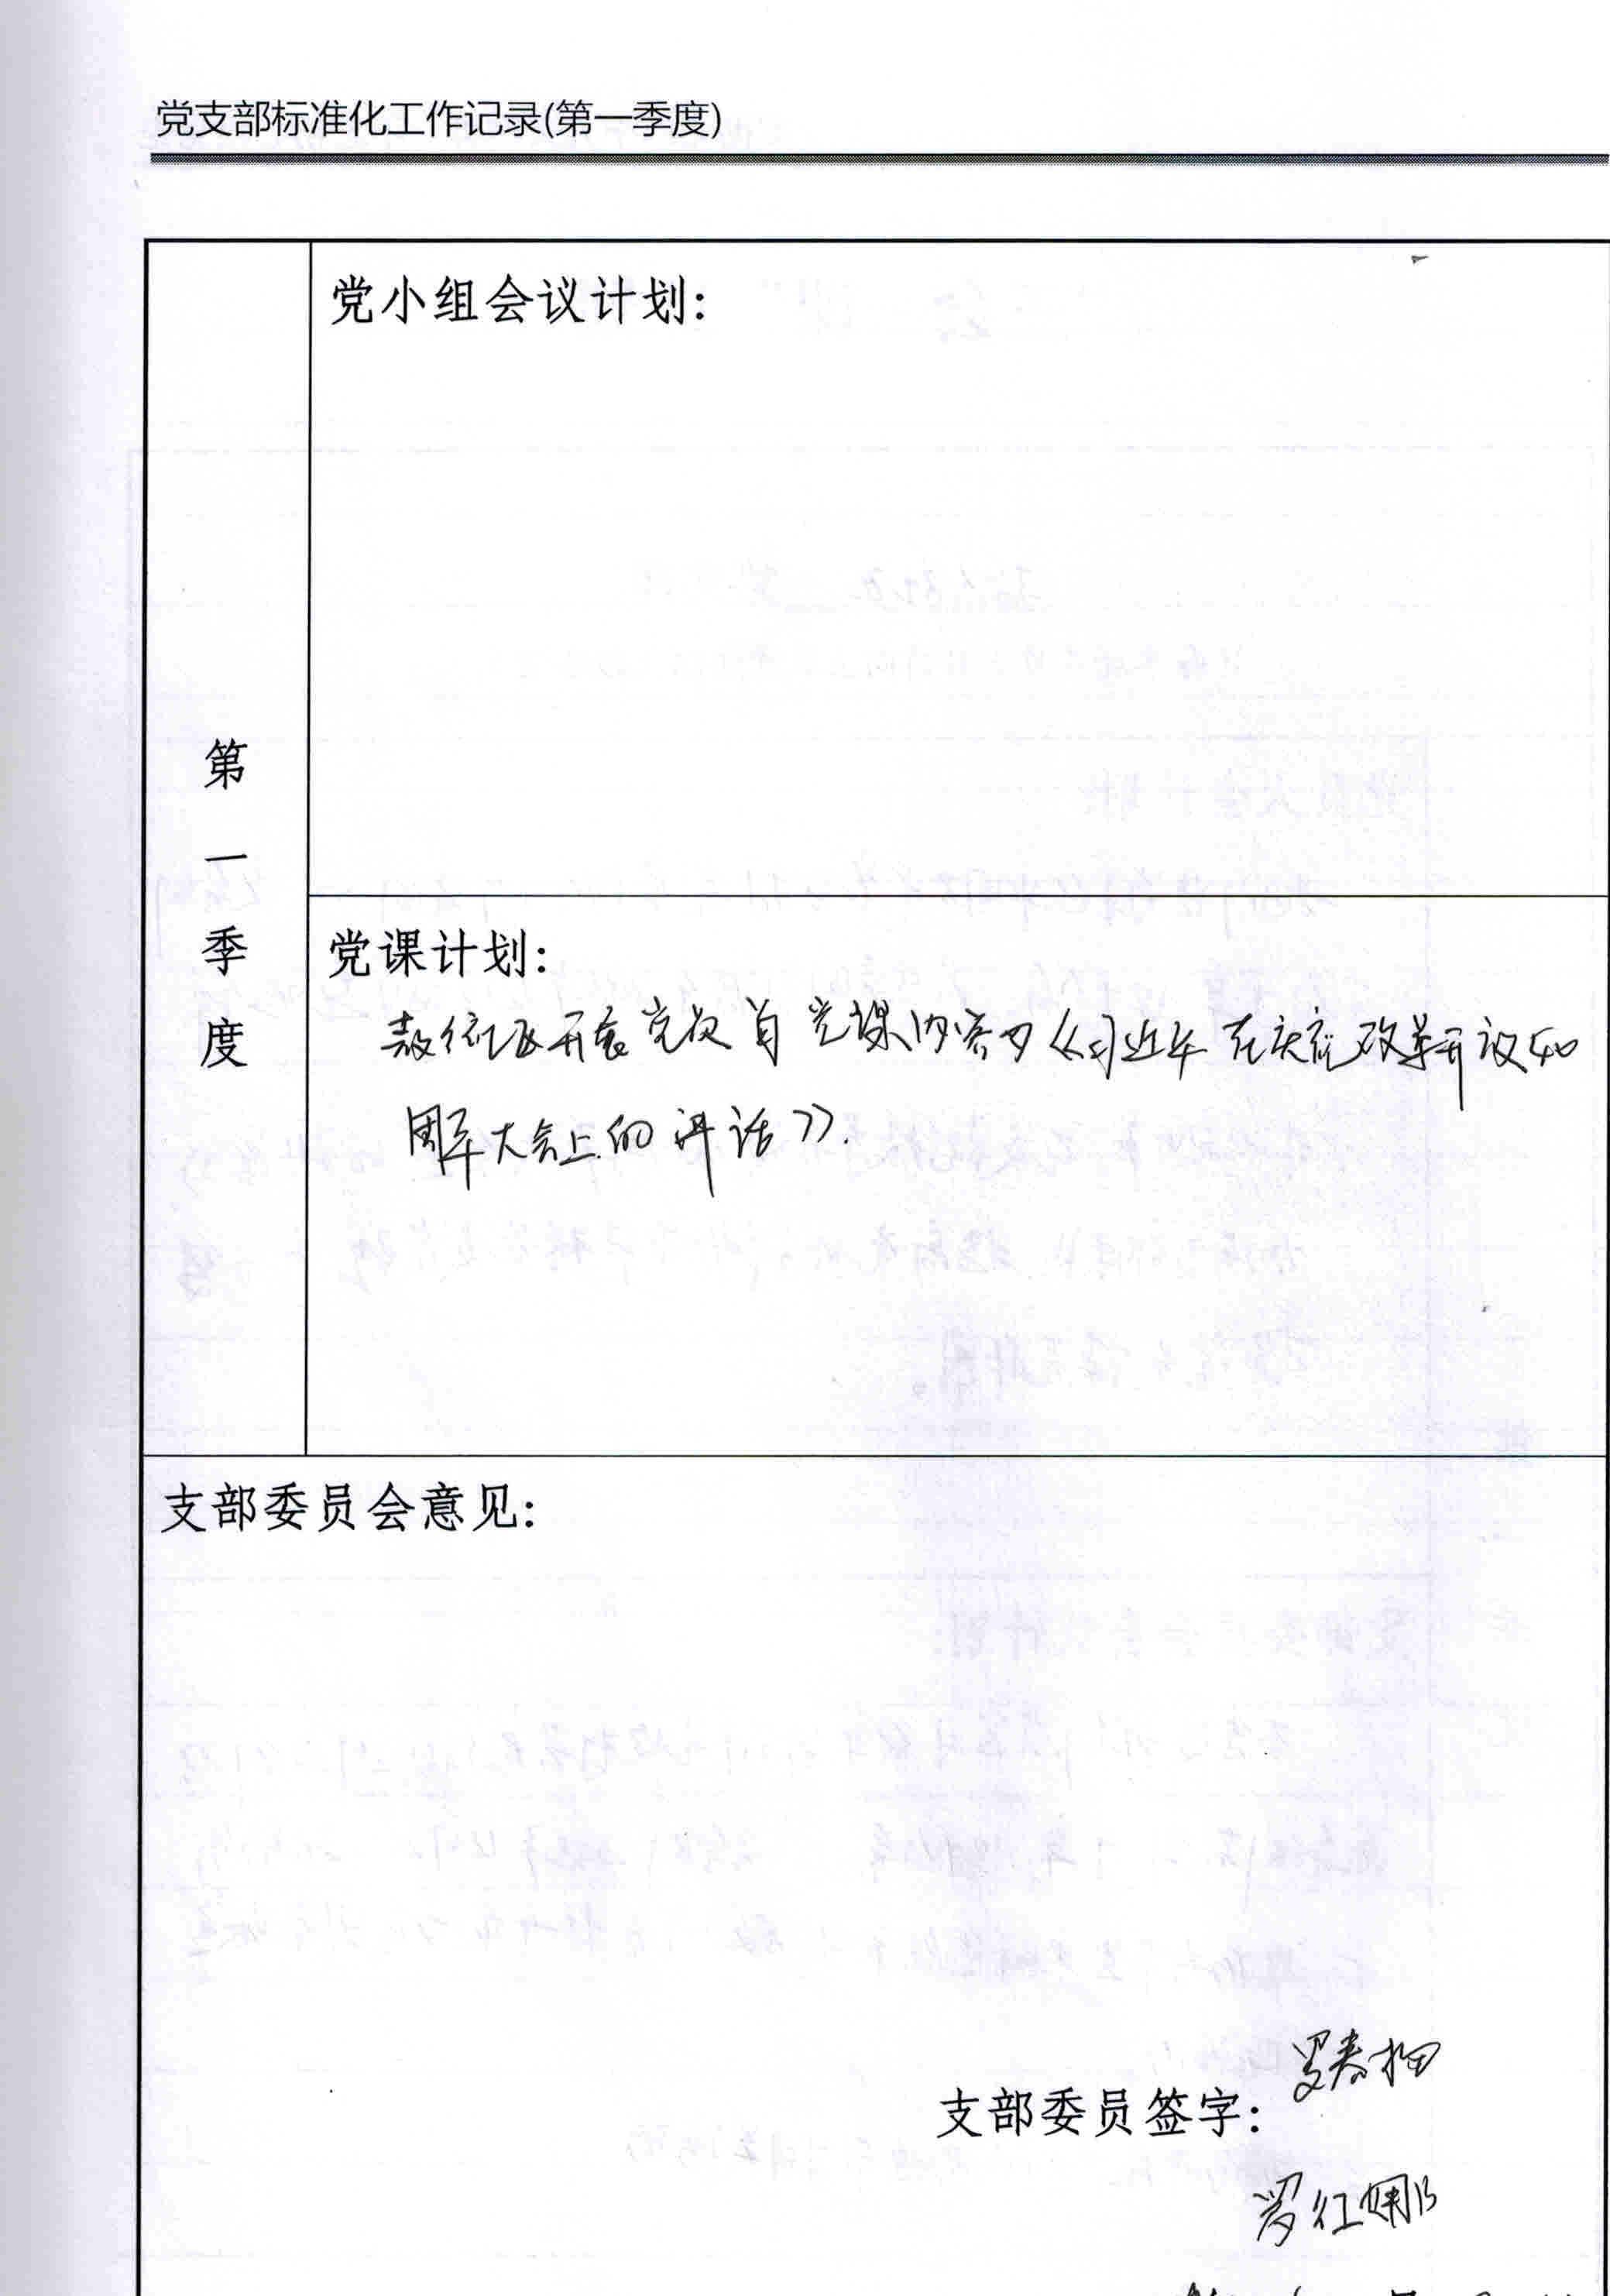 党支部标准化工作记录(第一季度)
党小组会议计划:
第一季度
党课计划:
开展党 党课内容为《习近平在庆祝改革开放40
周年大会上的讲话》.
支部委员会意见:
支部委员签字:
罗红